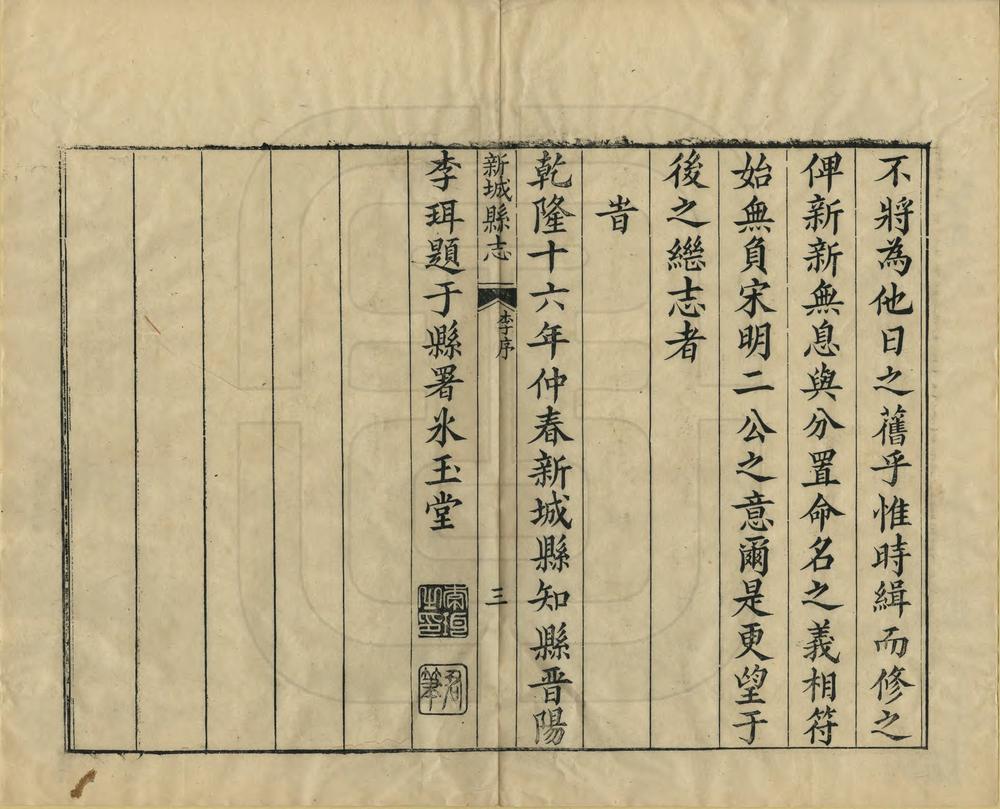 不將為他日之舊乎惟時緝而修之
俾新新無息與分置命名之義相符
始無負宋明二公之意爾是更望于
後之繼志者
旹
乾隆十六年仲春新城縣知縣晋陽
新城縣志 李序 三
李珥題于縣署氷玉堂
李珥之印